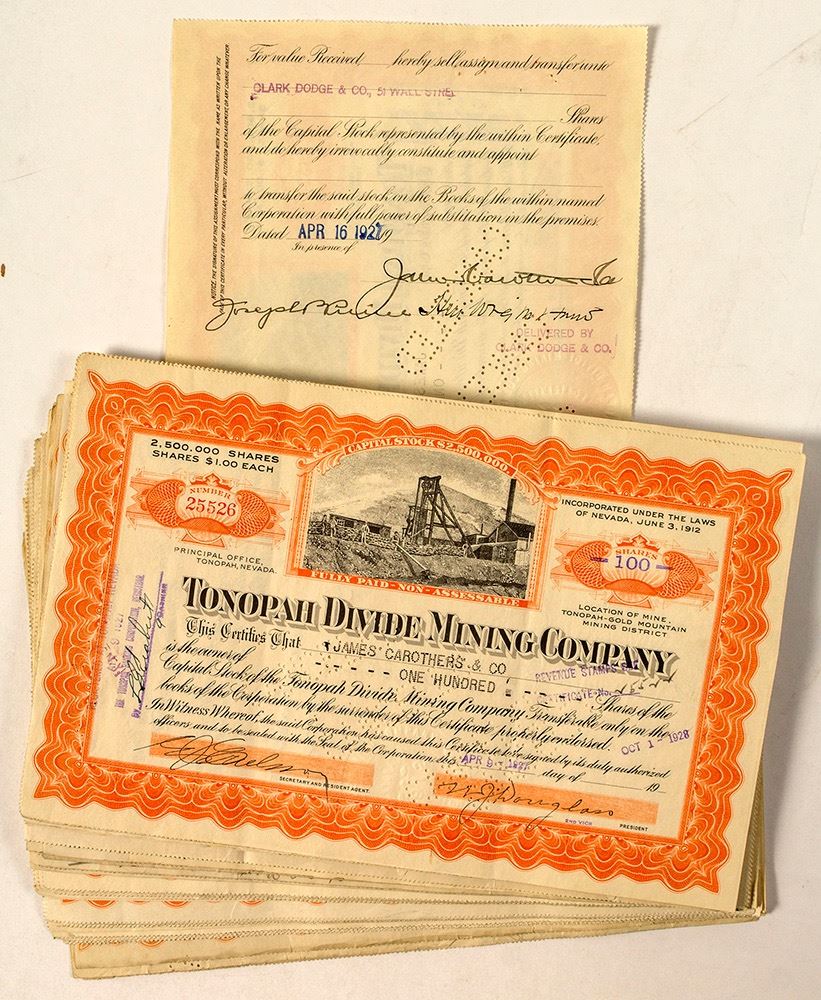 For value Received hereby sell, assign and transfer unto
CLARK DODGE & CO., 51 WALL STREE
Shares
of the Capital Stock represented by the within Certificate,
and do hereby irrevocably constitute and appoint
to transfer the said stock on the Books of the within named
Corporation with full power of substitution in the premises.
Dated APR 16 1927 19
In presence of
DELIVERED BY
CLARK DODGE & CO.
NOTICE. THE SIGNATURE OF THIS ASSIGNMENT MUST CORRESPOND WITH THE NAME AS WRITTEN UPON THE
FACE OF THIS CERTIFICATE IN EVERY PARTICULAR, WITHOUT ALTERATION OR ENLARGEMENT, OR ANY CHANGE WHATEVER.
CAPITAL STOCK $2,500,000.
2,500,000 SHARES
SHARES $1.00 EACH
NUMBER
25526
PRINCIPAL OFFICE,
TONOPAH, NEVADA.
INCORPORATED UNDER THE LAWS
OF NEVADA, JUNE 3, 1912
SHARES
100
LOCATION OF MINE,
TONOPAH-GOLD MOUNTAIN
MINING DISTRICT
FULLY PAID - NON-ASSESSABLE
TONOPAH DIVIDE MINING COMPANY
This Certifies That JAMES CAROTHERS & CO
REVENUE STAMPS
is the owner of ONE HUNDRED Shares of the
Capital Stock of the Tonopah Divide Mining Company Transferable only on the
books of the Corporation by the surrender of this Certificate properly endorsed.
OCT 1 - 1926
In Witness Whereof, the said Corporation has caused this Certificate to be signed by its duly authorized
officers and to be sealed with the Seal of the Corporation this APR 9 - 1927 day of 19
SECRETARY AND RESIDENT AGENT
H. J. Douglass
2ND VICE PRESIDENT